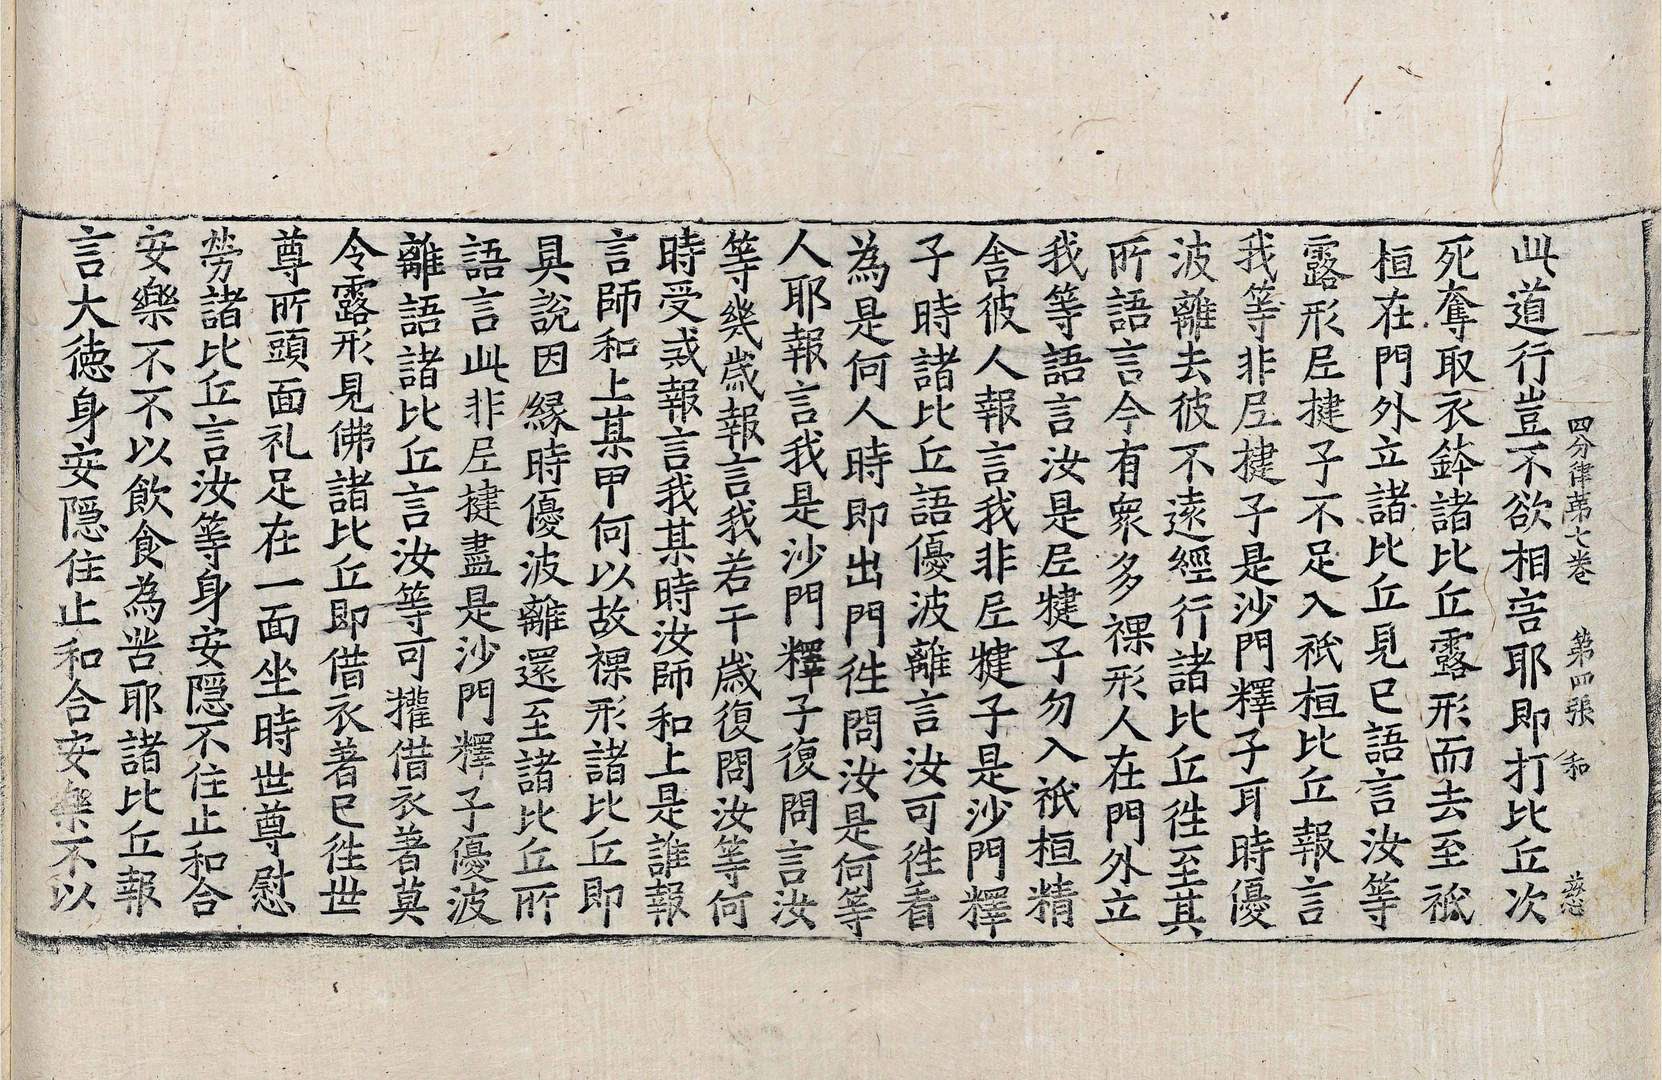 四分律苐七卷 第四張 和 慈
此道行豈不欲相害耶即打比丘次
死奪取衣鉢諸比丘露形而去至祇
桓在門外立諸比丘見已語言汝等
露形尼揵子不足入祇桓比丘報言
我等非尼揵子是沙門釋子耳時優
波離去彼不遠經行諸比丘徃至其
所語言今有衆多裸形人在門外立
我等語言汝是尼揵子勿入祇桓精
舍彼人報言我非尼揵子是沙門釋
子時諸比丘語優波離言汝可徃看
為是何人時即出門徃問汝是何等
人耶報言我是沙門釋子復問言汝
等幾歲報言我若干歲復問汝等何
時受戒報言我某時汝師和上是誰報
言師和上某甲何以故裸形諸比丘即
具說因緣時優波離還至諸比丘所
語言此非尼揵盡是沙門釋子優波
離語諸比丘言汝等可權借衣著莫
令露形見佛諸比丘即借衣著已徃世
尊所頭面礼足在一面坐時世尊慰
勞諸比丘言汝等身安隱不住止和合
安樂不不以飲食為苦耶諸比丘報
言大德身安隱住止和合安樂不以